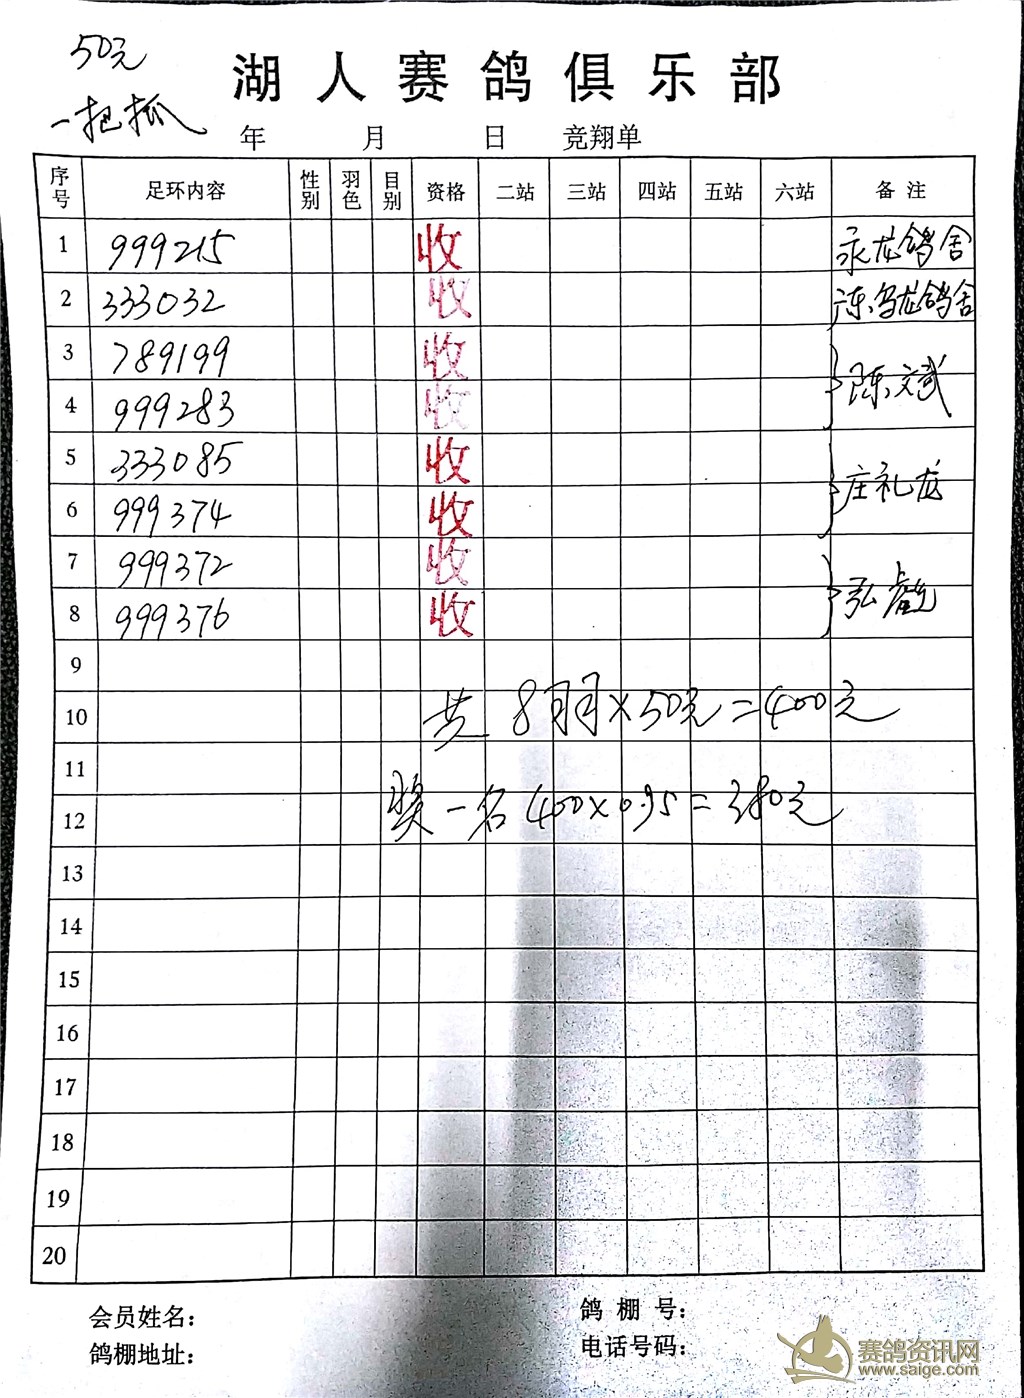 50元
一把抓
湖人赛鸽俱乐部
年 月 日 竞翔单
序号 足环内容 性别 羽色 目别 资格 二站 三站 四站 五站 六站 备注
1 999215 收 永龙鸽舍
2 333032 收 陈乌龙鸽舍
3 789199 收
4 999283 收 陈文斌
5 333085 收
6 999374 收 庄礼龙
7 999372 收
8 999376 收 弘
9
10 共 8羽×50元=400元
11
12 奖一名 400×0.95=380元
13
14
15
16
17
18
19
20
会员姓名: 鸽棚号:
鸽棚地址: 电话号码:
赛鸽资讯网
www.saige.com